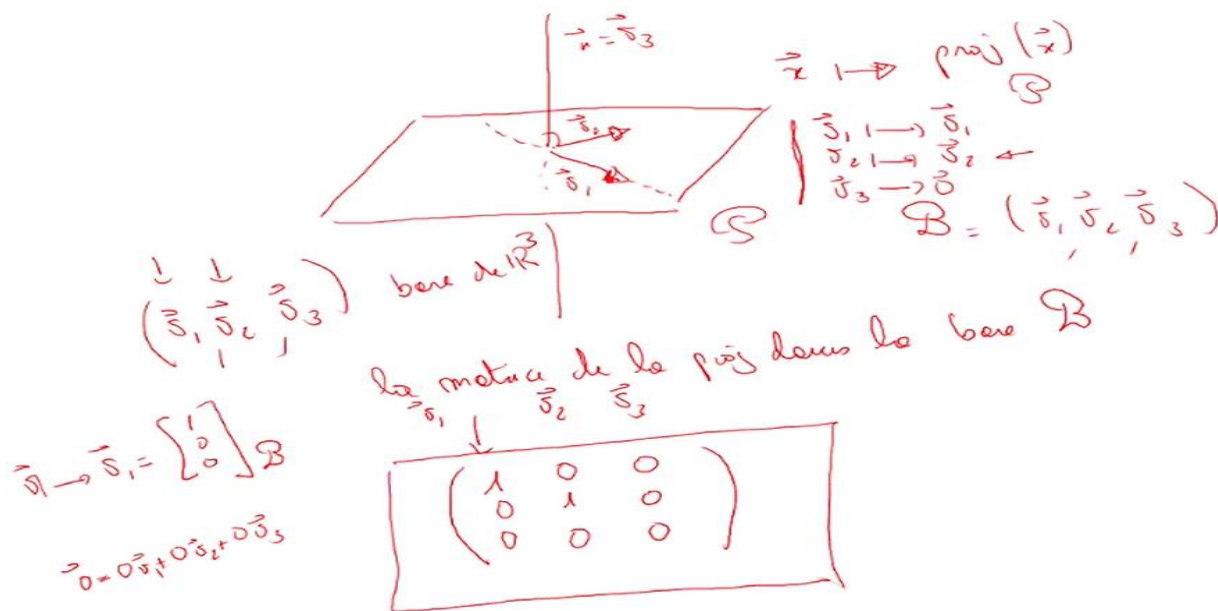 $\vec{n} = \vec{v}_3$
$\vec{x} \mapsto \text{proj}_{\mathcal{P}}(\vec{x})$
$\vec{v}_2$
$\vec{v}_1$
$\vec{v}_1 \mapsto \vec{v}_1$
$\vec{v}_2 \mapsto \vec{v}_2$ ←
$\vec{v}_3 \to \vec{0}$
$\mathcal{P}$
$\mathcal{B} = (\vec{v}_1, \vec{v}_2, \vec{v}_3)$
↓ ↓
$(\vec{v}_1, \vec{v}_2, \vec{v}_3)$ base de $\mathbb{R}^3$
la matrice de la proj dans la base $\mathcal{B}$
$\vec{v}_1$ $\vec{v}_2$ $\vec{v}_3$
↓
$\vec{v}_1 \to \vec{v}_1 = \begin{bmatrix} 1 \\ 0 \\ 0 \end{bmatrix}_{\mathcal{B}}$
$\begin{pmatrix} 1 & 0 & 0 \\ 0 & 1 & 0 \\ 0 & 0 & 0 \end{pmatrix}$
$\vec{0} = 0\vec{v}_1 + 0\vec{v}_2 + 0\vec{v}_3$